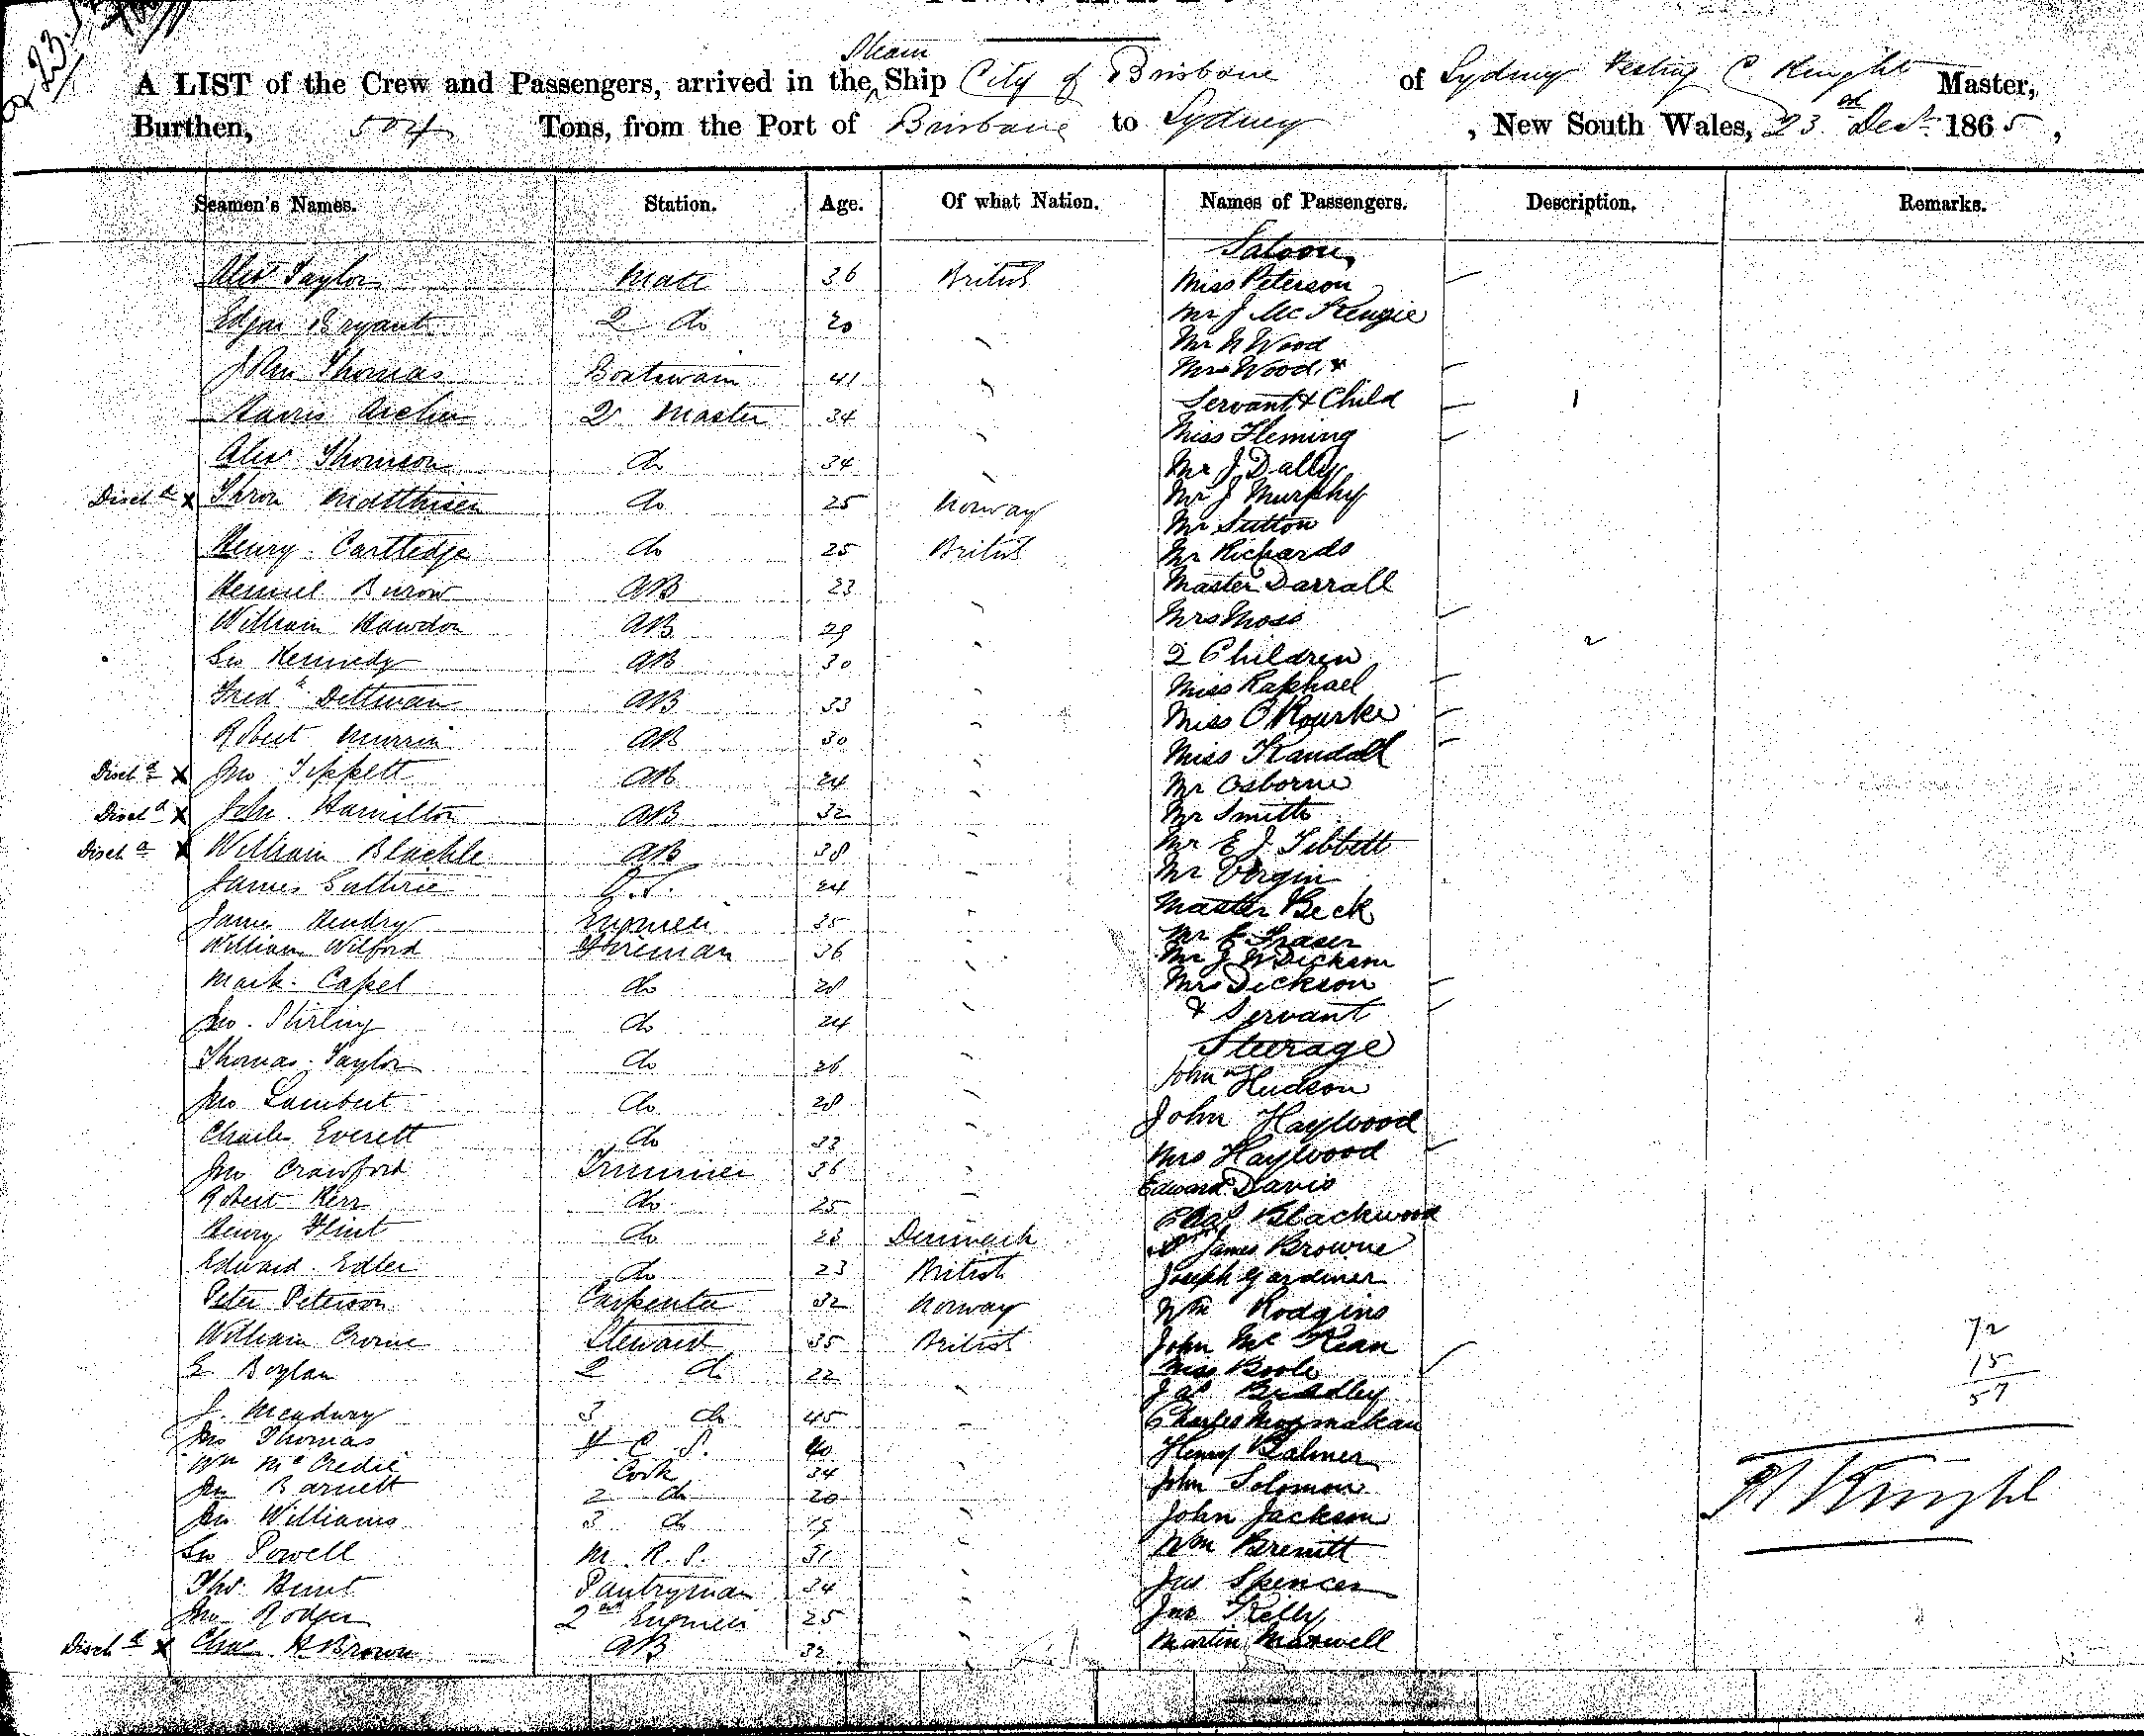 23
Steam
A LIST of the Crew and Passengers, arrived in the ^ Ship City of Brisbane of Sydney C Knight Master,
Burthen, 504 Tons, from the Port of Brisbane to Sydney , New South Wales, 23rd Decr 1865 ,
Seamen's Names. Station. Age. Of what Nation. Names of Passengers. Description. Remarks.
Saloon,
Alexr Taylor Mate 36 British Miss Peterson
Edgar Bryant 2 do 20 Mr J McKenzie
Mr N Wood
John Thomas Boatswain 41 Mrs Wood &
Servant & Child 1
Harris Archer Qr Master 34 Miss Fleming
Alexr Thomson do 34 Mr J Dally
Mr J Murphy
Dischd x Thron Matthisen do 25 Norway Mr Sutton
Henry Cartledge do 25 British Mr Richards
Burow AB 23 Master Darrall
William Hawdon AB 29 Mrs Moss
Geo Kennedy AB 30 2 Children 2
Fredk Dettman AB 33 Miss Raphael
Miss O'Rourke
Robert Murrin AB 30 Miss Randall
Dischd x Jno Tippett AB 24 Mr Osborne
Dischd x John Hamilton AB 32 Mr Smith
Dischd x William Blachle AB 38 Mr E J Tibbett
James Guthrie O.S. 24 Mr Virgin
Master Beck
James Hendry Engineer 35 Mr E Fraser
William Wilford Fireman 36 Mr J W Dickson
Mark Capel do 28 Mrs Dickson
& Servant
Jno. Stirling do 24 Steerage
Thomas Taylor do 26 John Hudson
Jno Lambert do 28 John Haylwood
Charles Everett do 33 Mrs Haylwood
Jno Crawford Trimmer 36 Edward Davis
Robert Kerr do 25 Chas Blackwood
Henry Flint do 23 Denmark James Browne
Edward Edler do 23 British Joseph Gardiner
Peter Peterson Carpenter 32 Norway Wm Rodgins
William Crome Steward 35 British John McKean
E Boylan 2 do 22 Miss Boole
Jas Bradley
J. Meadway 3 do 45 Charles
Jno Thomas F C S. 40 Henry Balmer
Wm McCredie Cook 34 John Solomon
Jno Barnett 2 do 20 John Jackson
Jno Williams 3 do 19 Wm Brenitt
Geo Powell M. R. S. 31 Jas Spencer
Thos Hunt Pantryman 34 Jno Kelly
Jno Rodger 2nd Engineer 25 Martin Maxwell
Dischd x Chas H Brown AB 32
72
15
57
Knight